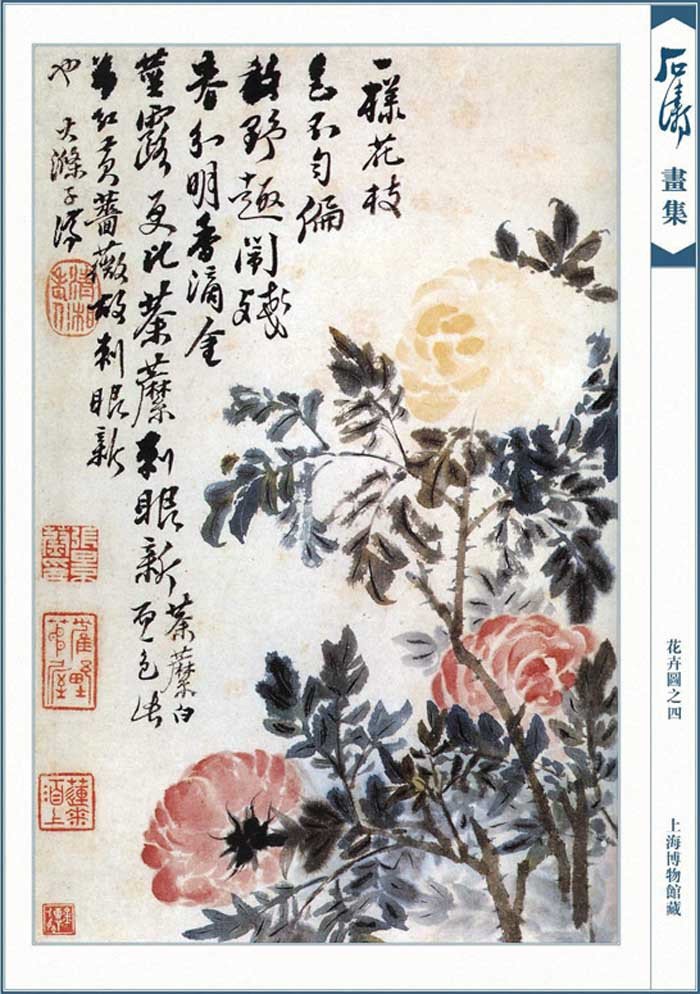 石濤
畫集
花卉圖之四
上海博物館藏
一樣花枝
色不勻偏
教野趣鬧殘
春分明香滴金
莖露更比荼蘼刺眼新
荼蘼白
而色
紅黃薔薇故刺眼新
也 大滌子濟
清湘老人